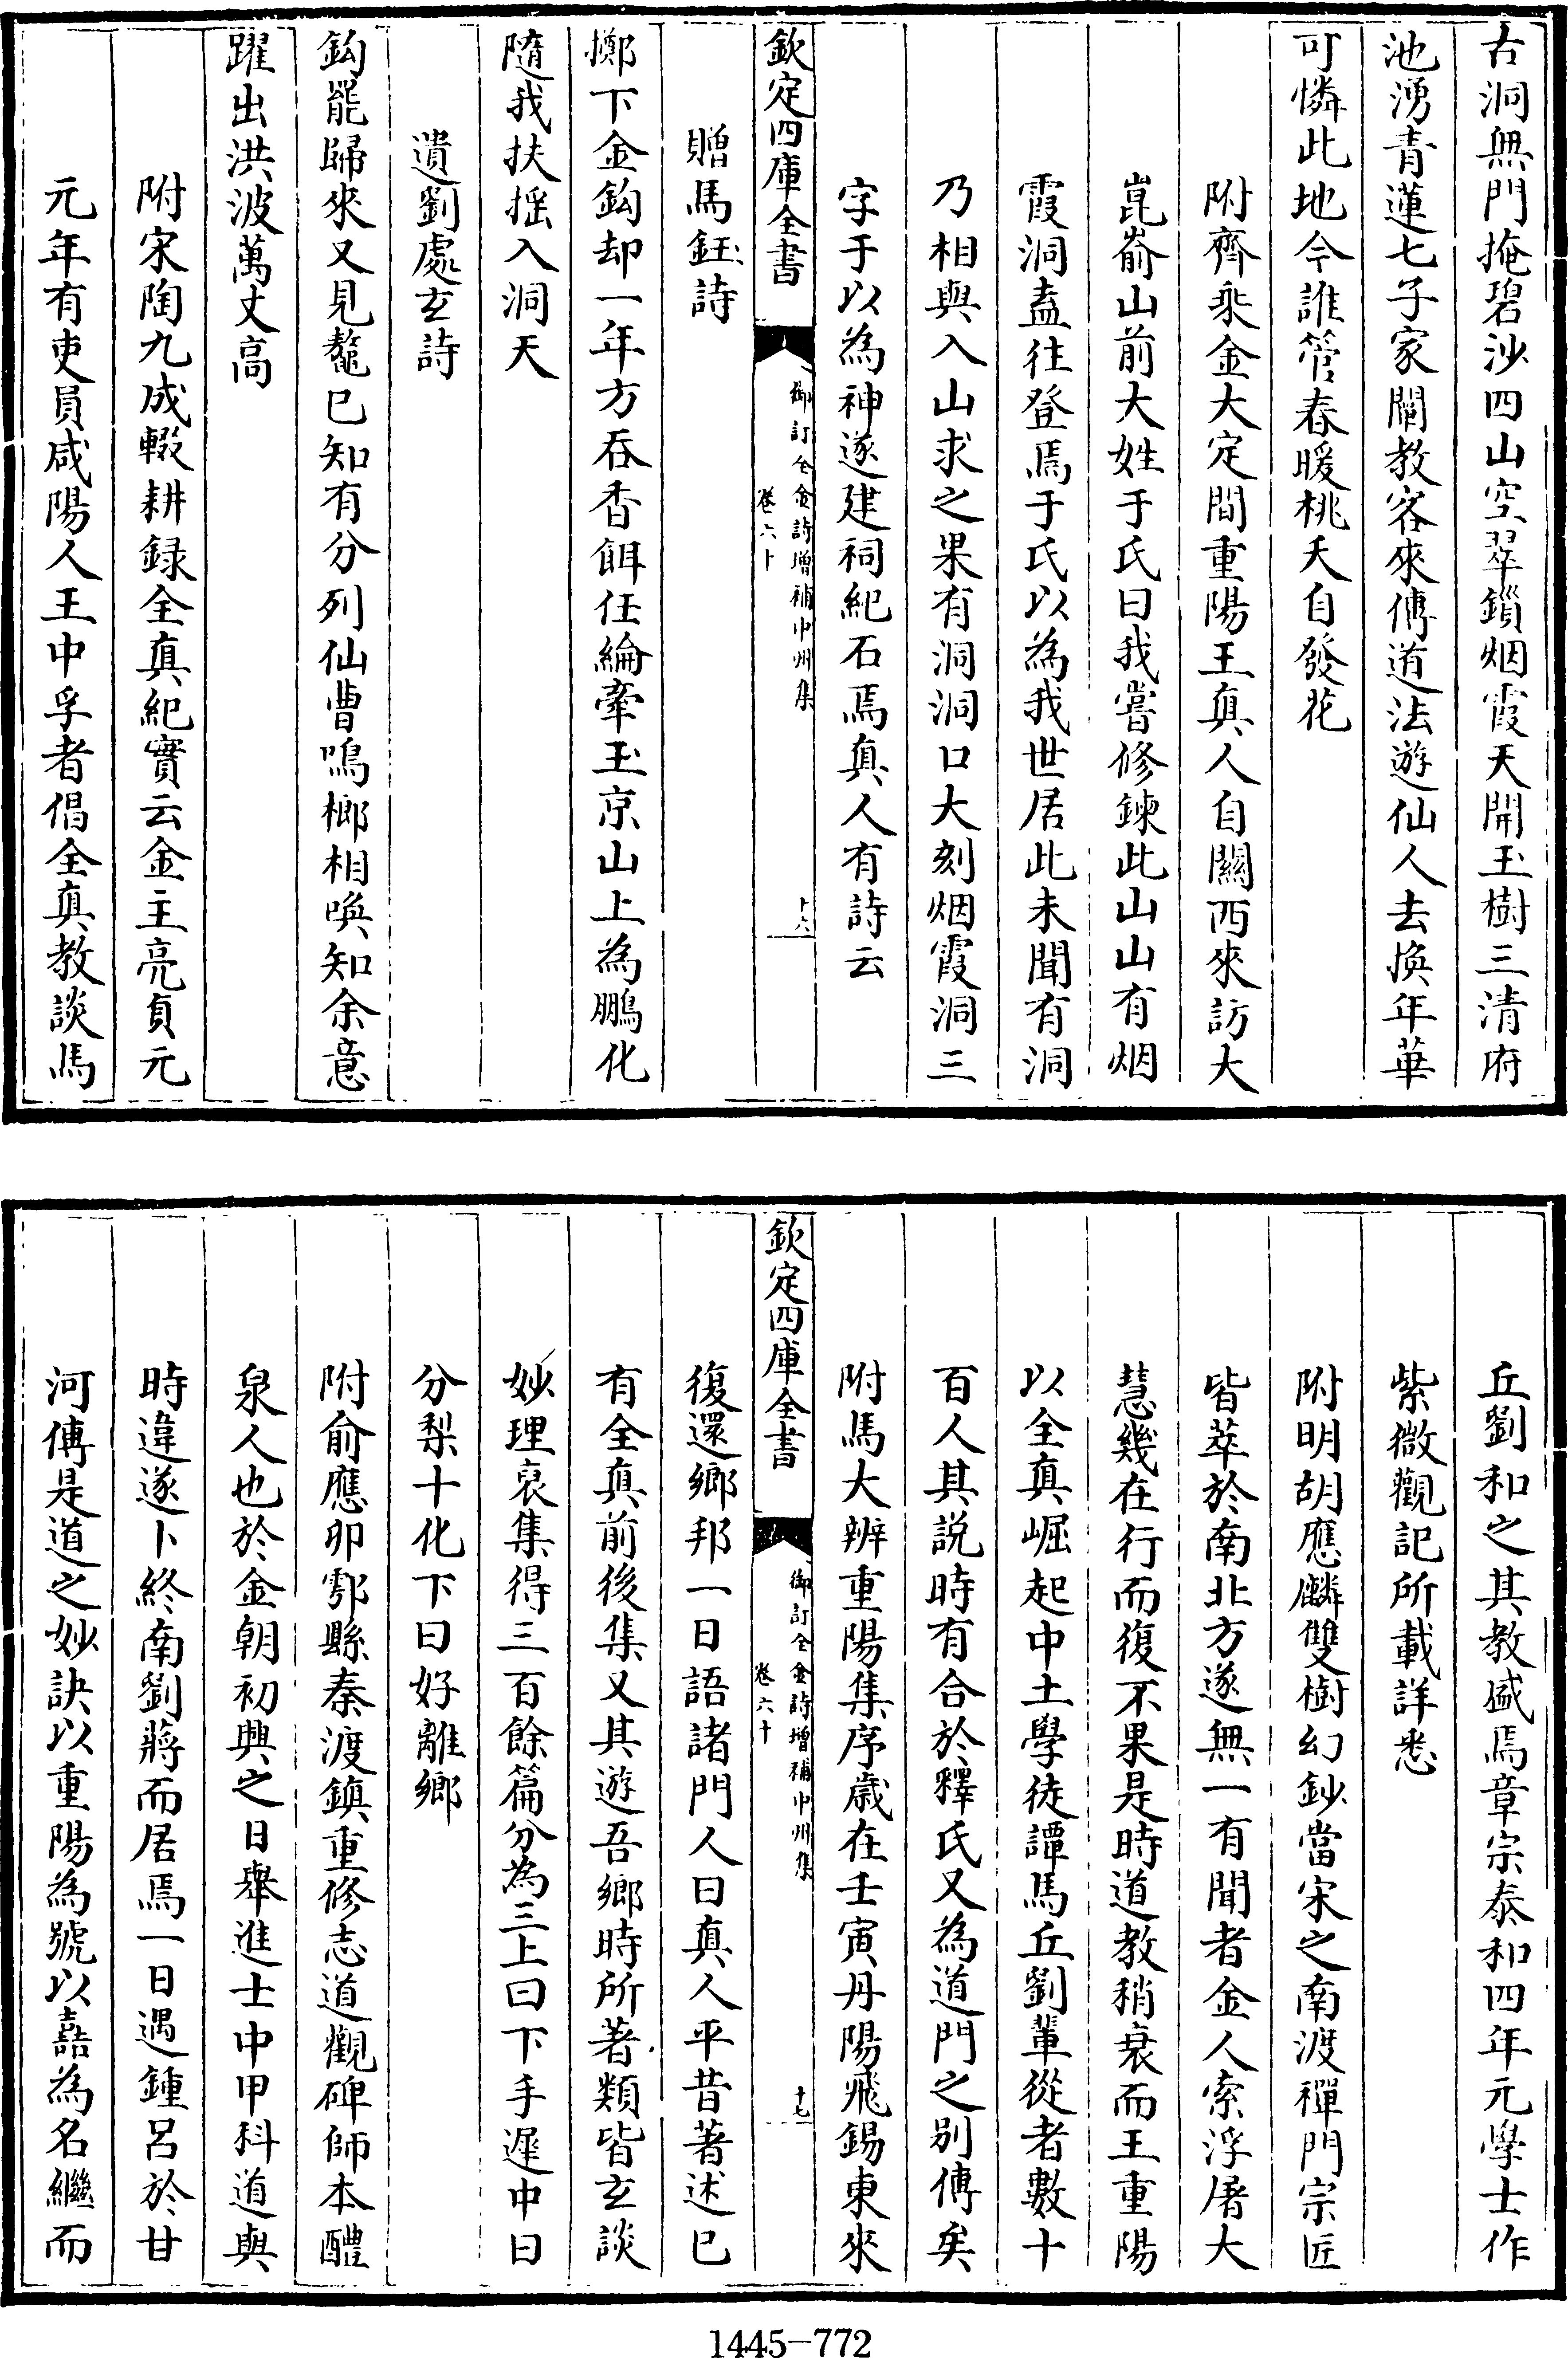 古洞無門掩碧沙四山空翠鎻烟霞天開玉樹三清府
池湧青蓮七子家闡教客來傳道法遊仙人去換年華
可憐此地今誰管春暖桃夭自發花
附齊乘金大定間重陽王真人自關西來訪大
崑崳山前大姓于氏曰我嘗修鍊此山山有烟
霞洞盍往登焉于氏以為我世居此未聞有洞
乃相與入山求之果有洞洞口大刻烟霞洞三
字于以為神遂建祠紀石焉真人有詩云
欽定四庫全書
御訂全金詩增補中州集
卷六十
十六
贈馬鈺詩
擲下金鈎却一年方吞香餌任綸牽玉京山上為鵬化
隨我扶揺入洞天
遺劉處玄詩
鈎罷歸來又見鼇已知有分列仙曹鳴榔相喚知余意
躍出洪波萬丈高
附宋陶九成輟耕録全真紀實云金主亮貞元
元年有吏員咸陽人王中孚者倡全真教談馬
丘劉和之其教盛焉章宗泰和四年元學士作
紫微觀記所載詳悉
附明胡應麟雙樹幻鈔當宋之南渡禪門宗匠
皆萃於南北方遂無一有聞者金人索浮屠大
慧幾在行而復不果是時道教稍衰而王重陽
以全真崛起中土學徒譚馬丘劉輩從者數十
百人其説時有合於釋氏又為道門之别傳矣
附馬大辨重陽集序歲在壬寅丹陽飛錫東來
欽定四庫全書
御訂全金詩增補中州集
卷六十
十七
復還鄉邦一日語諸門人曰真人平昔著述已
有全真前後集又其遊吾鄉時所著類皆玄談
妙理裒集得三百餘篇分為三上曰下手遲中曰
分梨十化下曰好離鄉
附俞應卯鄠縣秦渡鎮重修志道觀碑師本醴
泉人也於金朝初興之日舉進士中甲科道與
時違遂卜終南劉蔣而居焉一日遇鍾呂於甘
河傳是道之妙訣以重陽為號以嚞為名繼而
1445-772